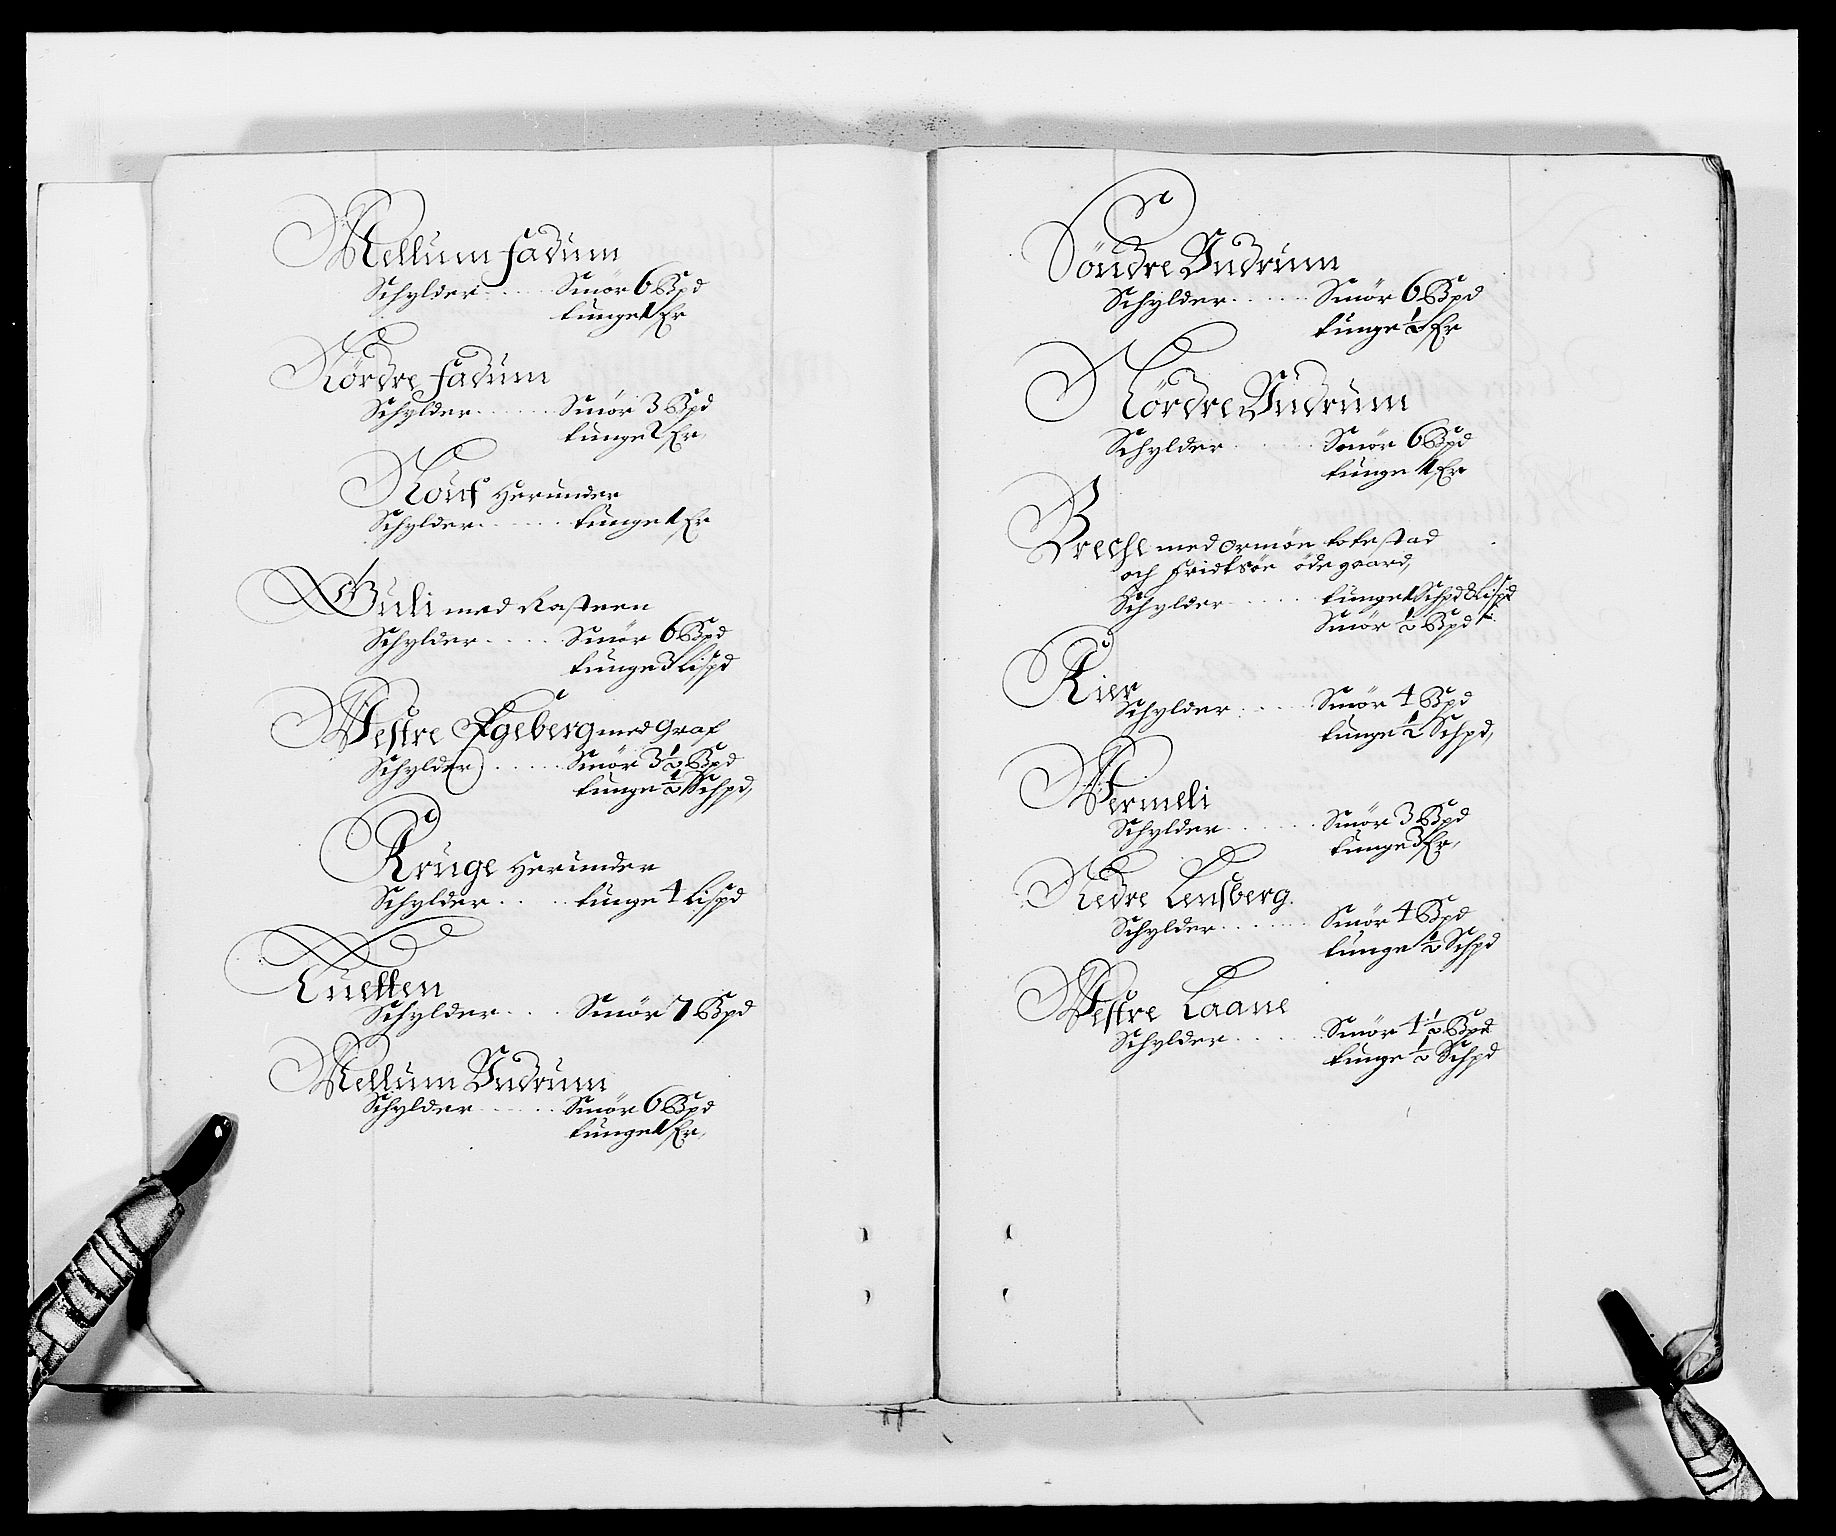 Mellum Fadum
Schylder..... Smör 6 Bpd
tunge 1 Er
Nördre Fadum
Schylder...... Smör 3 Bpd
tunge 2 Er,
Rouf Herunder
Schylder...... tunge 1 Er
Guli med Rasteen
Schylder..... Smör 6 Bpd
tunge 3 Lispd
Westre Egeberg med Graf
Schylder..... Smör 3½ Bpd
tunge ½ Schpd,
Kruge Herunder
Schylder.... tunge 4 Lispd
Luetten
Schylder.... Smör 7 Bpd
Mellum Undrum
Schylder...... Smör 6 Bpd
tunge 1 Er,
Söndre Undrum
Schylder...... Smör 6 Bpd
tunge ½ Er
Nördre Undrum
Schylder...... Smör 6 Bpd
tunge 1 Er
Breche med Ormöe tokestad
och Fridtsöe öde gaard,
Schylder...... tunge 1 Schpd 8 Lispd
Smör ½ Bpd
Kier
Schylder..... Smör 4 Bpd
tunge ½ Schpd,
Wermeli
Schylder...... Smör 3 Bpd
tunge 3 Er,
Nedre Lensberg.
Schylder...... Smör 4 Bpd
tunge ½ Schpd
Westre Laane
Schylder...... Smör 4½ Bpd
tunge ½ Schpd